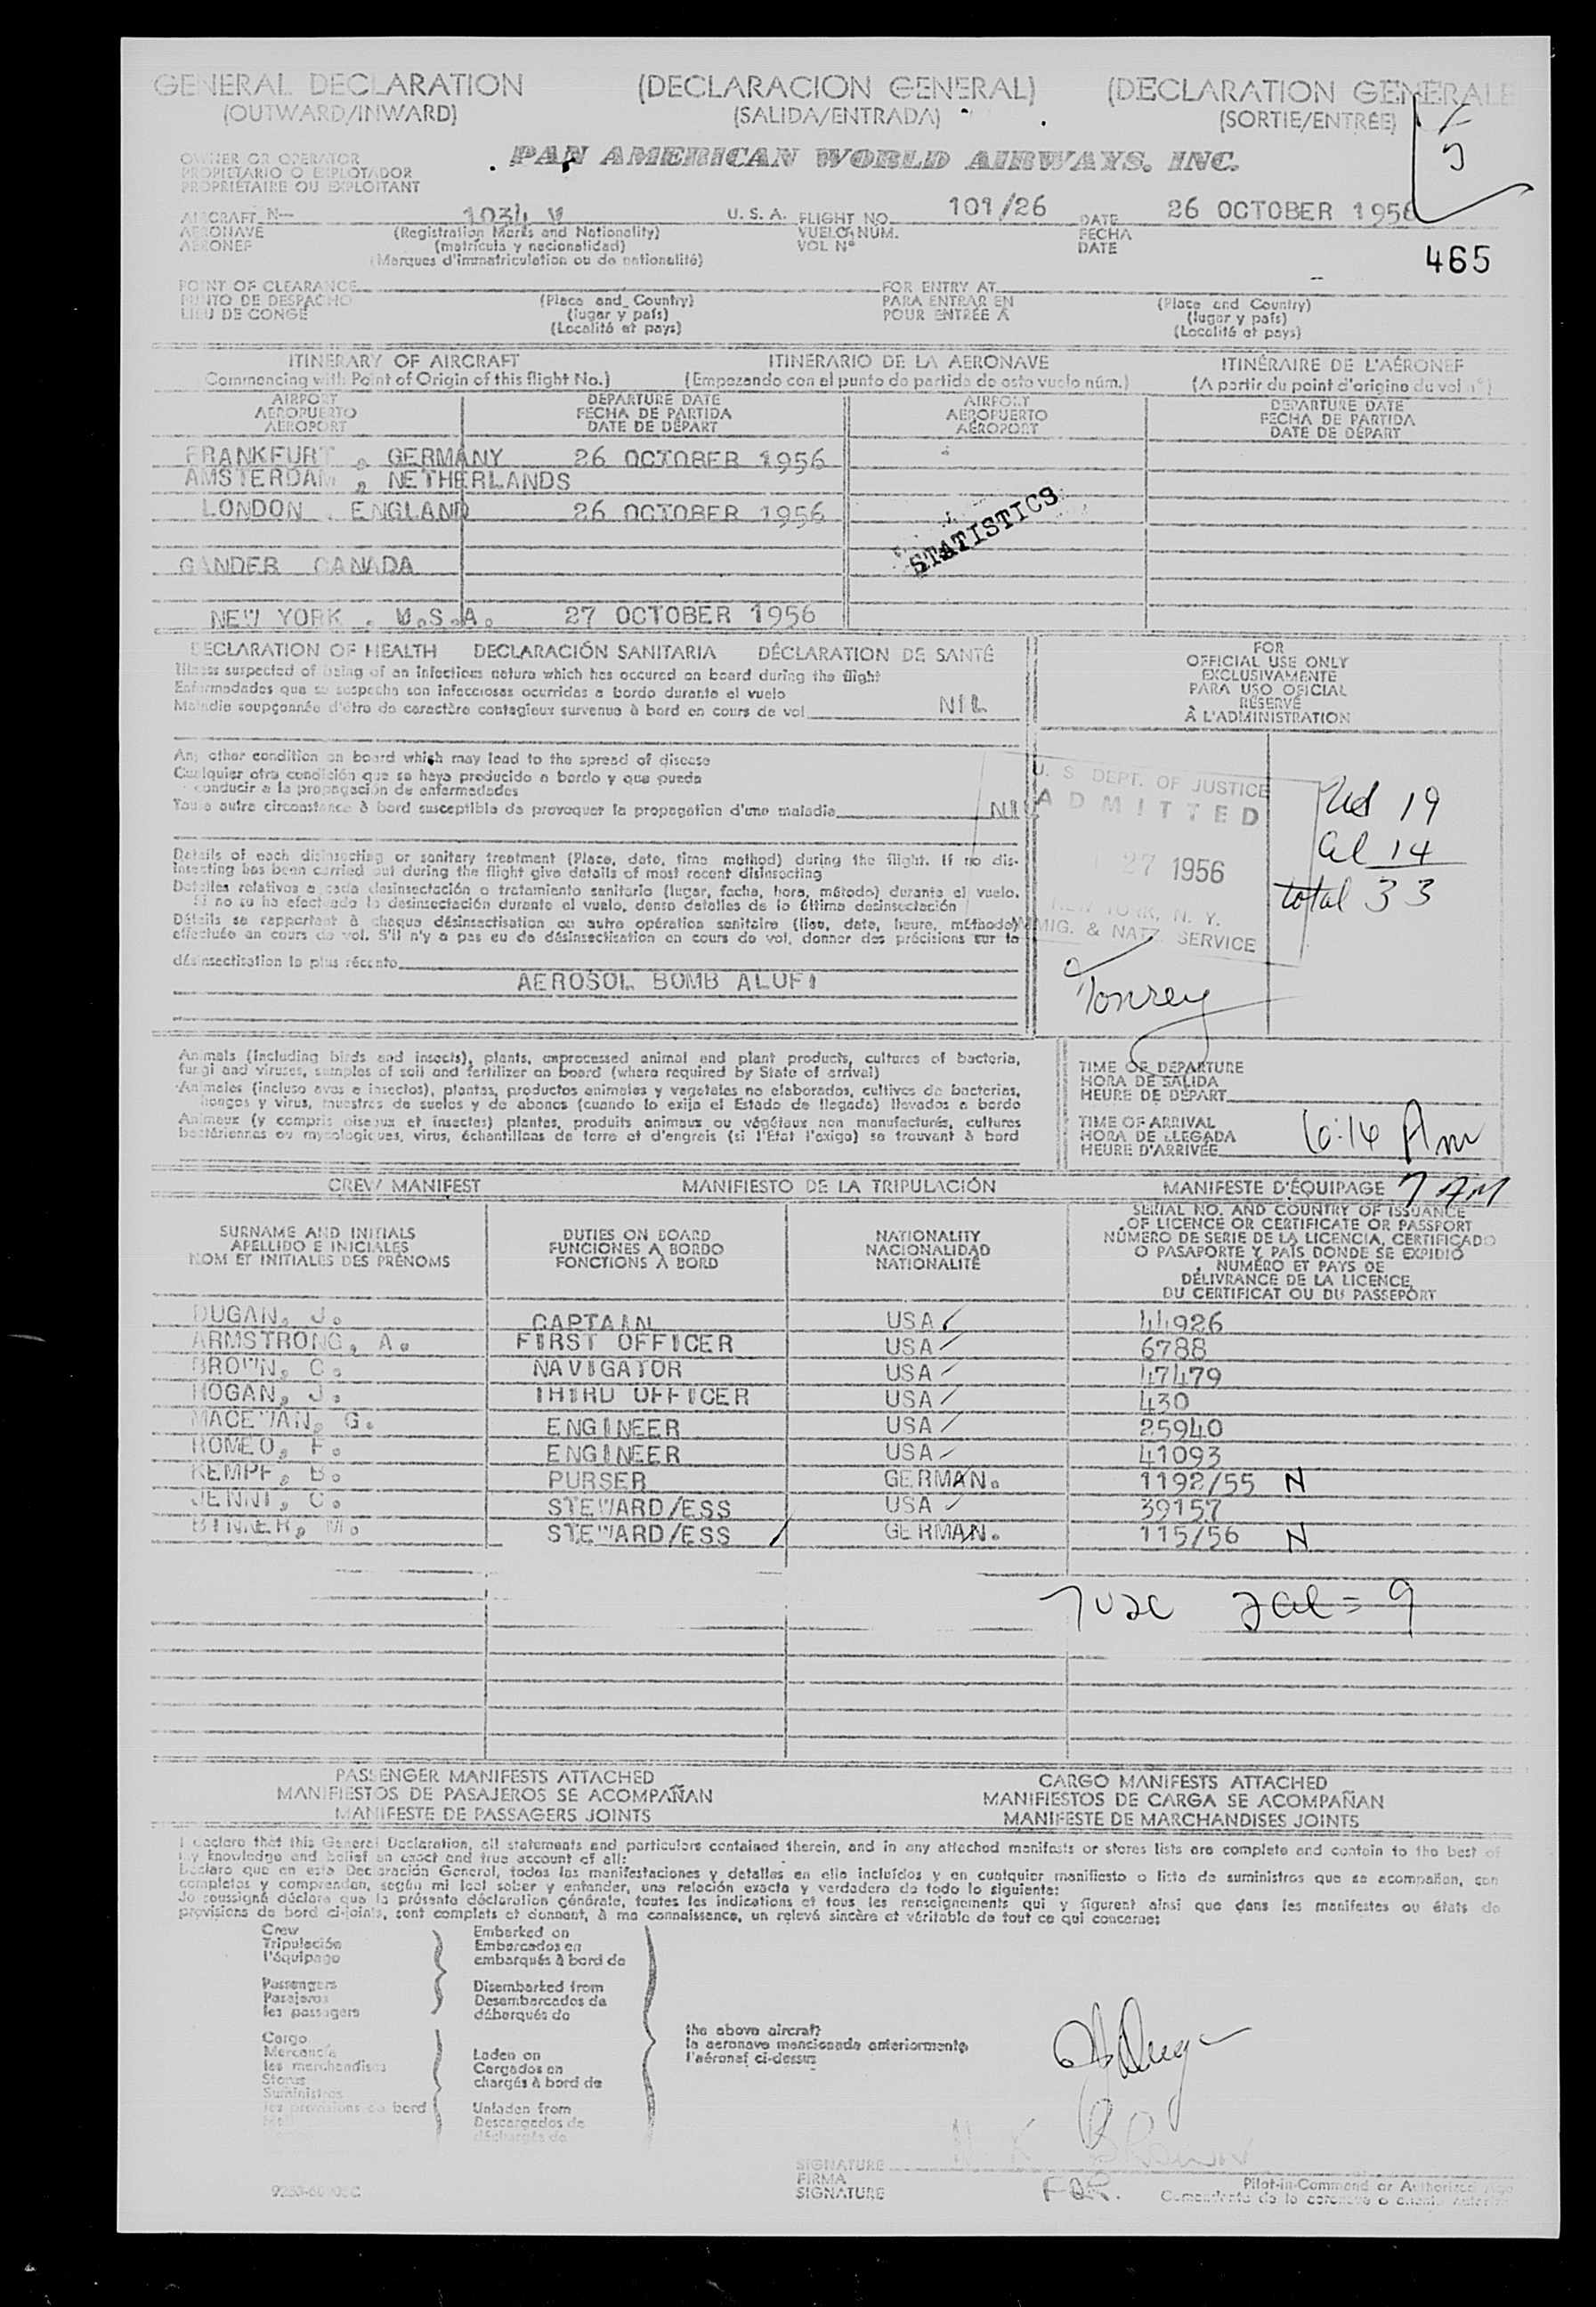 GENERAL DECLARATION (DECLARACION GENERAL) (DECLARATION GÉNÉRALE
(OUTWARD/INWARD) (SALIDA/ENTRADA) (SORTIE/ENTRÉE)
5
OWNER OR OPERATOR
PROPIETARIO O EXPLOTADOR
PROPRIÉTAIRE OU EXPLOITANT
PAN AMERICAN WORLD AIRWAYS, INC.
AIRCRAFT N— 1034 V U. S. A. FLIGHT NO. 101/26 DATE 26 OCTOBER 1956
AERONAVE (Registration Marks and Nationality) VUELO NUM. FECHA
AÉRONEF (matrícula y nacionalidad) VOL Nº DATE
(Marques d'immatriculation ou de nationalité)
465
POINT OF CLEARANCE FOR ENTRY AT
PUNTO DE DESPACHO (Place and Country) PARA ENTRAR EN (Place and Country)
LIEU DE CONGÉ (lugar y país) POUR ENTRÉE A (lugar y país)
(Localité et pays) (Localité et pays)
ITINERARY OF AIRCRAFT ITINERARIO DE LA AERONAVE ITINÉRAIRE DE L'AÉRONEF
Commencing with Point of Origin of this flight No.) (Empezando con el punto de partida de este vuelo núm.) (A partir du point d'origine du vol nº)
AIRPORT DEPARTURE DATE AIRPORT DEPARTURE DATE
AEROPUERTO FECHA DE PARTIDA AEROPUERTO FECHA DE PARTIDA
AÉROPORT DATE DE DÉPART AÉROPORT DATE DE DÉPART
FRANKFURT , GERMANY 26 OCTOBER 1956
AMSTERDAM , NETHERLANDS
LONDON . ENGLAND 26 OCTOBER 1956
STATISTICS
GANDER CANADA
NEW YORK . U.S.A. 27 OCTOBER 1956
DECLARATION OF HEALTH DECLARACIÓN SANITARIA DÉCLARATION DE SANTÉ
Illness suspected of being of an infectious nature which has occured on board during the flight
Enfermedades que se sospecha son infecciosas ocurridas a bordo durante el vuelo
Maladie soupçonnée d'être de caractère contagieux survenue à bord en cours de vol NIL
FOR
OFFICIAL USE ONLY
EXCLUSIVAMENTE
PARA USO OFICIAL
RÉSERVÉ
À L'ADMINISTRATION
Any other condition on board which may lead to the spread of disease
Cualquier otra condición que se haya producido a bordo y que pueda
conducir a la propagación de enfermedades
Toute autre circonstance à bord susceptible de provoquer la propagation d'une maladie NIL
U. S. DEPT. OF JUSTICE
ADMITTED
27 1956
NEW YORK, N. Y.
IMMIG. & NATZ. SERVICE
14
total 33
Details of each disinsecting or sanitary treatment (Place, date, time method) during the flight. If no dis-
insecting has been carried out during the flight give details of most recent disinsecting
Detalles relativos a cada desinsectación o tratamiento sanitario (lugar, fecha, hora, método) durante el vuelo.
Si no su ha efectuado la desinsectación durante el vuelo, dense detalles de la última desinsectación
Détails se rapportant à chaque désinsectisation ou autre opération sanitaire (lieu, date, heure, méthode)
effectuée an cours de vol. S'il n'y a pas eu de désinsectisation en cours de vol, donner des précisions sur la
désinsectisation la plus récente
AEROSOL BOMB ALOFT
Animals (including birds and insects), plants, unprocessed animal and plant products, cultures of bacteria,
fungi and viruses, samples of soil and fertilizer on board (where required by State of arrival)
Animales (incluso aves e insectos), plantas, productos animales y vegetales no elaborados, cultivos de bacterias,
hongos y virus, muestras de suelos y de abonos (cuando lo exija el Estado de llegada) llevados a bordo
Animaux (y compris oiseaux et insectes) plantes, produits animaux ou végétaux non manufacturés, cultures
bactériennes ou mycologiques, virus, échantillons de terre et d'engrais (si l'Etat l'exige) se trouvant à bord
TIME OF DEPARTURE
HORA DE SALIDA
HEURE DE DÉPART
TIME OF ARRIVAL
HORA DE LLEGADA
HEURE D'ARRIVÉE
7 AM
CREW MANIFEST MANIFIESTO DE LA TRIPULACIÓN MANIFESTE D'ÉQUIPAGE
SURNAME AND INITIALS DUTIES ON BOARD NATIONALITY SERIAL NO. AND COUNTRY OF ISSUANCE
APELLIDO E INICIALES FUNCIONES A BORDO NACIONALIDAD OF LICENCE OR CERTIFICATE OR PASSPORT
NOM ET INITIALES DES PRÉNOMS FONCTIONS À BORD NATIONALITÉ NÚMERO DE SERIE DE LA LICENCIA, CERTIFICADO
O PASAPORTE Y PAÍS DONDE SE EXPIDIÓ
NUMÉRO ET PAYS DE
DÉLIVRANCE DE LA LICENCE,
DU CERTIFICAT OU DU PASSEPORT
DUGAN, J. CAPTAIN USA 44926
ARMSTRONG, A. FIRST OFFICER USA 6788
BROWN, C. NAVIGATOR USA 47479
HOGAN, J. THIRD OFFICER USA 430
MACEWAN, G. ENGINEER USA 25940
ROMEO, F. ENGINEER USA 41093
KEMPF, B. PURSER GERMAN. 1192/55 N
JENNI, C. STEWARD/ESS USA 39157
BINKER, M. STEWARD/ESS GERMAN. 115/56 N
PASSENGER MANIFESTS ATTACHED CARGO MANIFESTS ATTACHED
MANIFIESTOS DE PASAJEROS SE ACOMPAÑAN MANIFIESTOS DE CARGA SE ACOMPAÑAN
MANIFESTE DE PASSAGERS JOINTS MANIFESTE DE MARCHANDISES JOINTS
I declare that this General Declaration, all statements and particulars contained therein, and in any attached manifests or stores lists are complete and contain to the best of
my knowledge and belief an exact and true account of all:
Declaro que en esta Declaración General, todas las manifestaciones y detalles en ella incluídos y en cualquier manifiesto o lista de suministros que se acompañan, son
completos y comprenden, según mi leal saber y entender, una relación exacta y verdadera de todo lo siguiente:
Je soussigné déclare que la présente déclaration générale, toutes les indications et tous les renseignements qui y figurent ainsi que dans les manifestes ou états de
provisions de bord ci-joints, sont complets et donnent, à ma connaissance, un relevé sincère et véritable de tout ce qui concerne:
Crew Embarked on
Tripulación Embarcados en
l'équipage embarqués à bord de
Passengers Disembarked from
Pasajeros Desembarcados de
les passagers débarqués de
the above aircraft
la aeronave mencionada anteriormente
l'aéronef ci-dessus
Cargo
Mercancía Laden on
les merchandises Cargados en
Stores chargés à bord de
Suministros
les provisions de bord Unladen from
Descargados de
déchargés de
BROWN
SIGNATURE
FIRMA FOR. Pilot-in-Command or Authorized
SIGNATURE